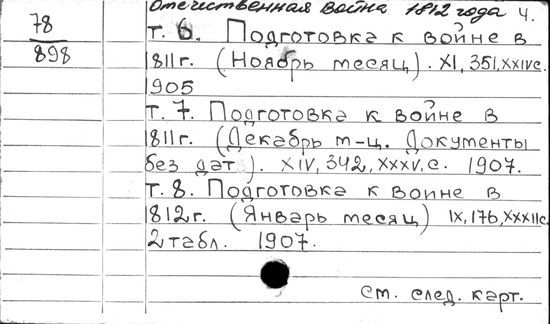 Отечественная война 1812 года 4.
78
898
т. 6. Подготовка к войне в
1811г. (Ноябрь месяц). XI, 351, XXIVс.
1905
т. 7. Подготовка к войне в
1811г. (Декабрь м-ц. Документы
без дат). XIV, 342, XXXV, с. 1907.
т. 8. Подготовка к войне в
1812г. (Январь месяц) IX, 176, XXXIIс.
2 табл. 1907.
см. след. карт.